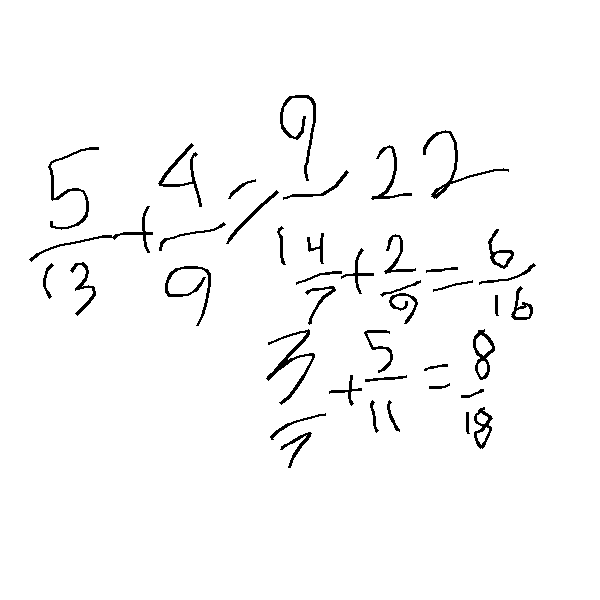 5/13 + 4/9 = 9/1 22
4/7 + 2/9 = 6/16
3/7 + 5/11 = 8/18